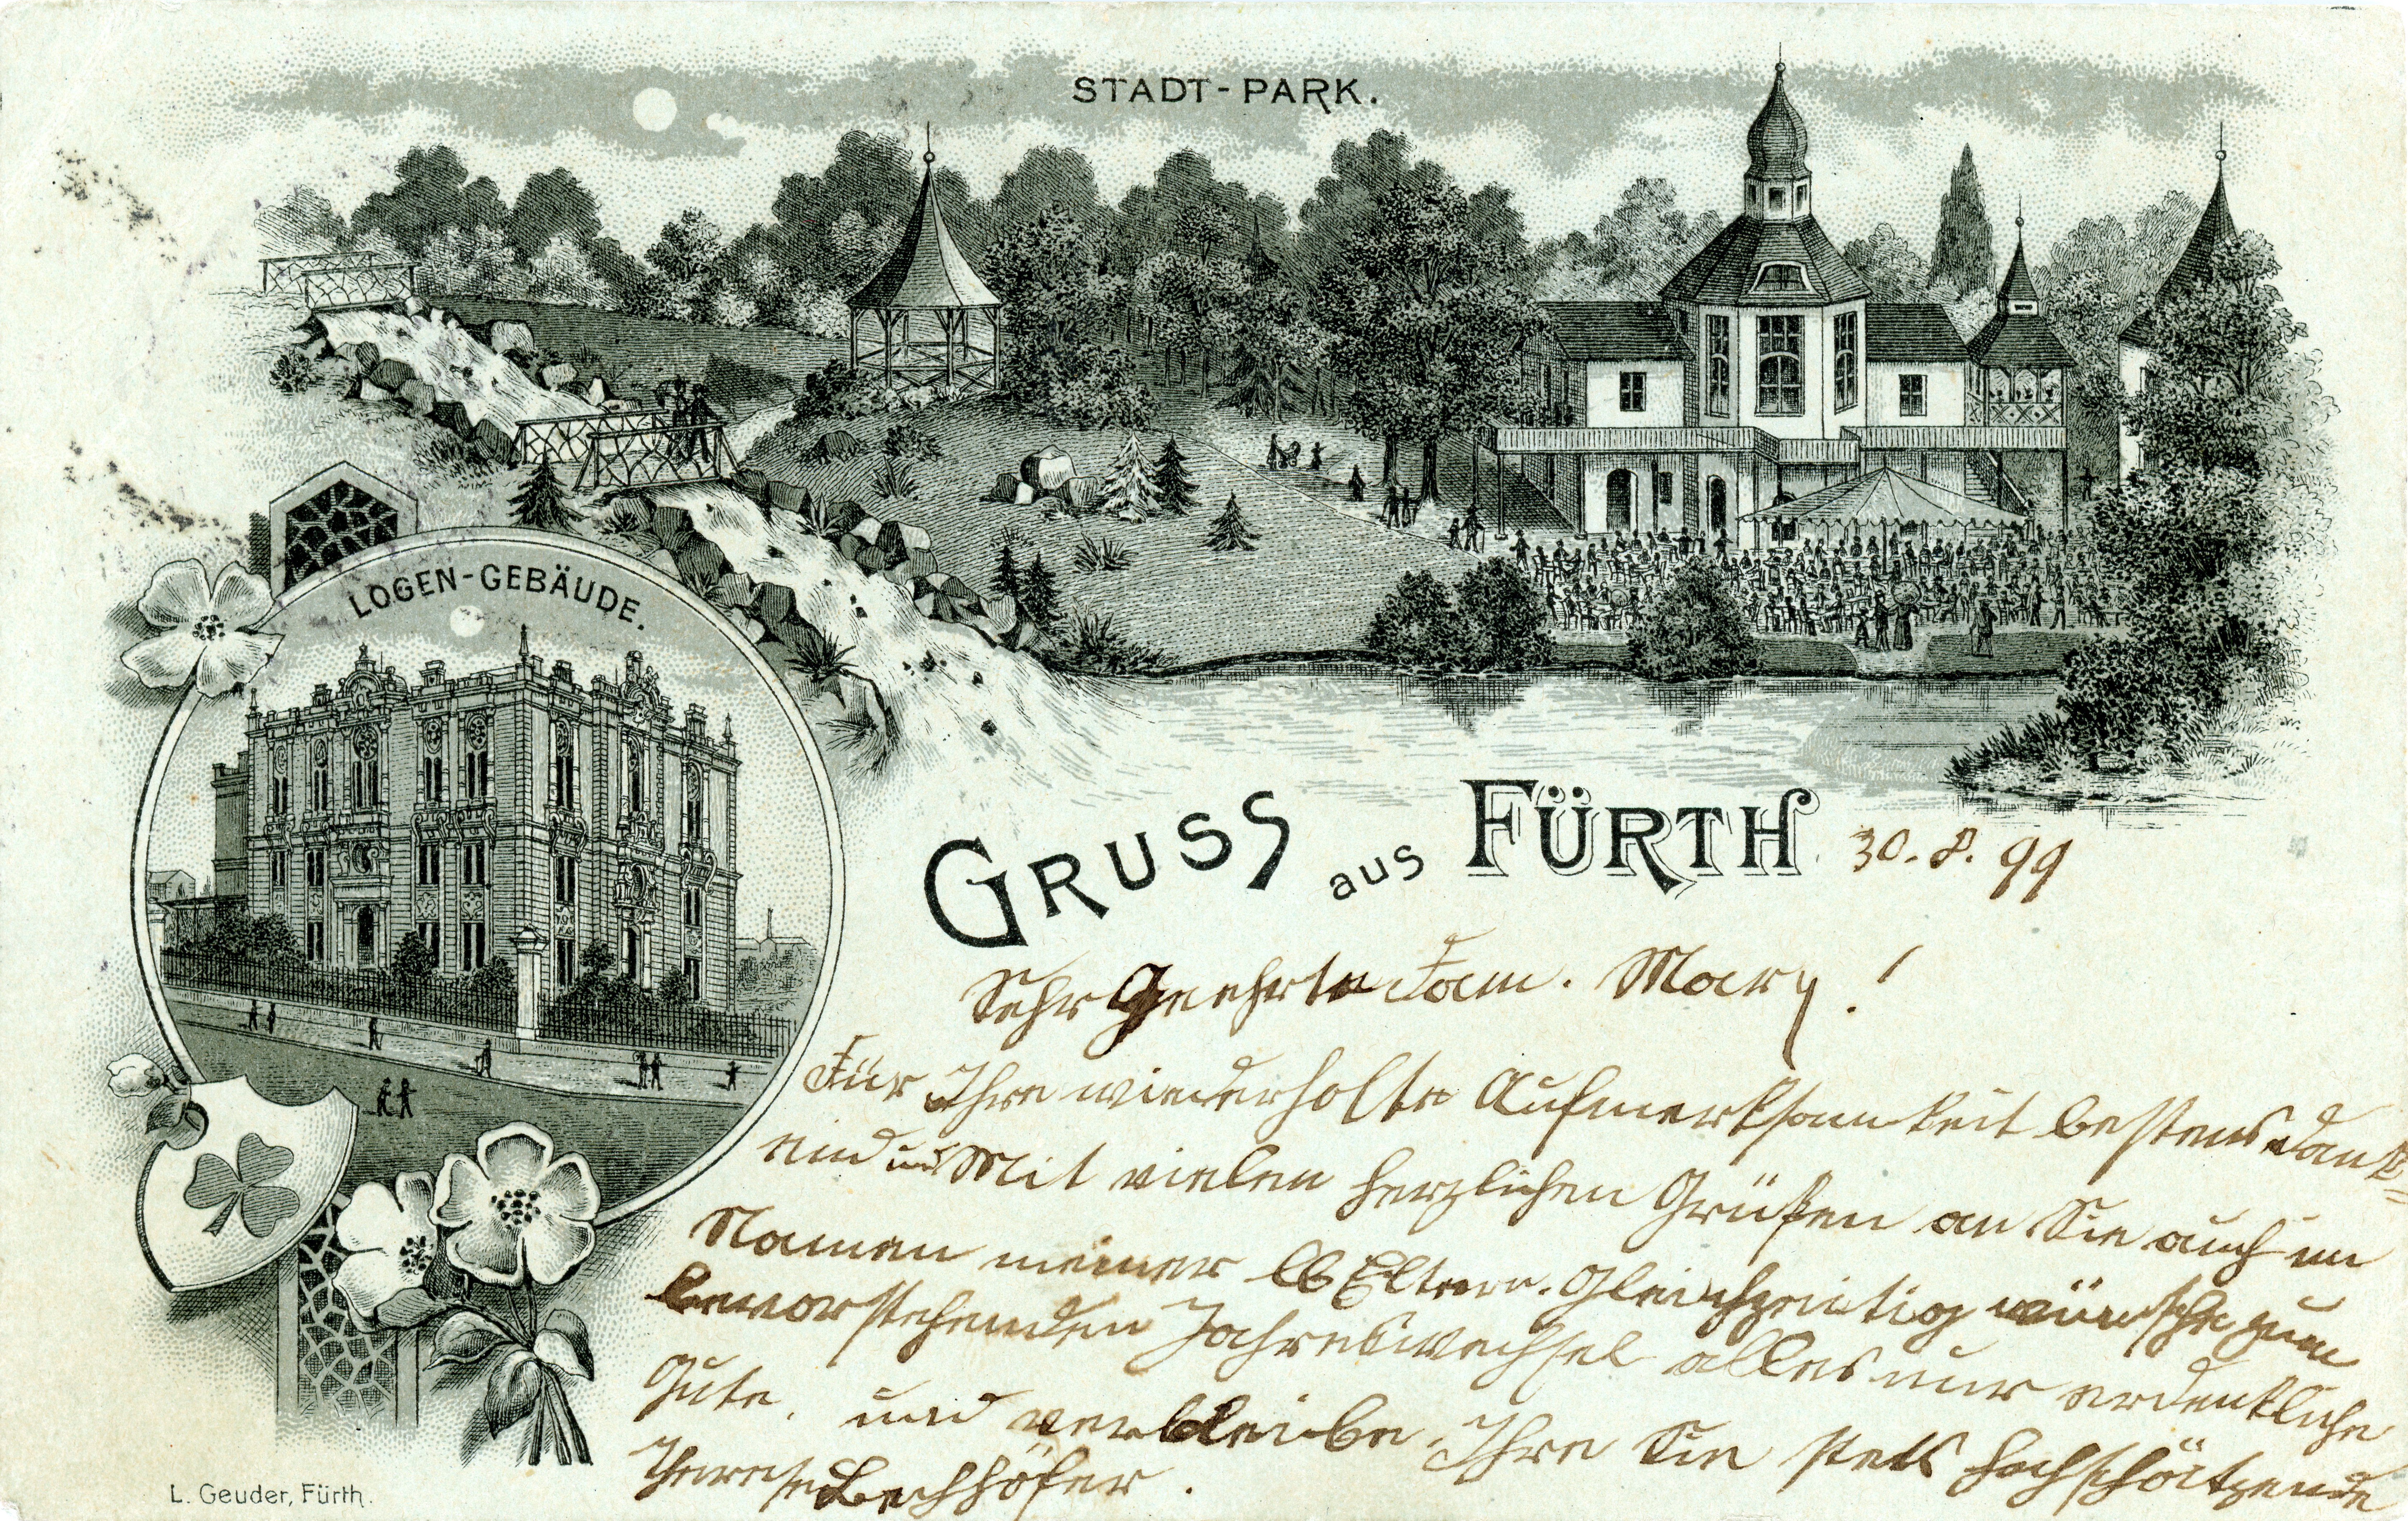 STADT-PARK.
LOGEN-GEBÄUDE.
GRUSS aus FÜRTH. 30. 8. 99
Sehr Geehrte Fam. Mary!
Für Ihre wiederholte Aufmerksamkeit bestens dank-
end und Mit vielen herzlichen Grüßen an Sie auch im
Namen meiner lb Eltern. Gleichzeitig wünsche zum
bevorstehenden Jahreswechsel alles nur erdenkliche
Gute, und verbleibe Ihre Sie stets hochschätzende
Therese Bechhöfer.
L. Geuder, Fürth.